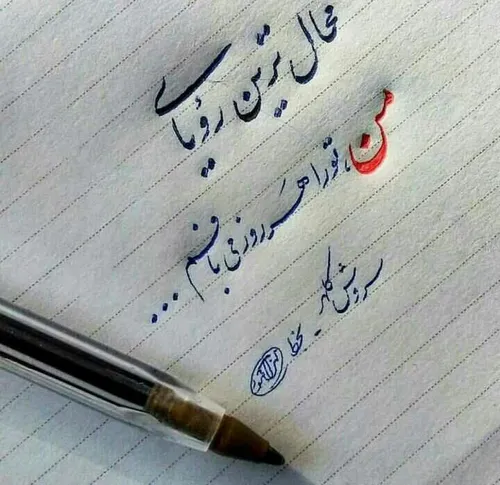 محال ترین رؤیای
من، تو را هر روز می بافم ...
سروش کلهر
بخط